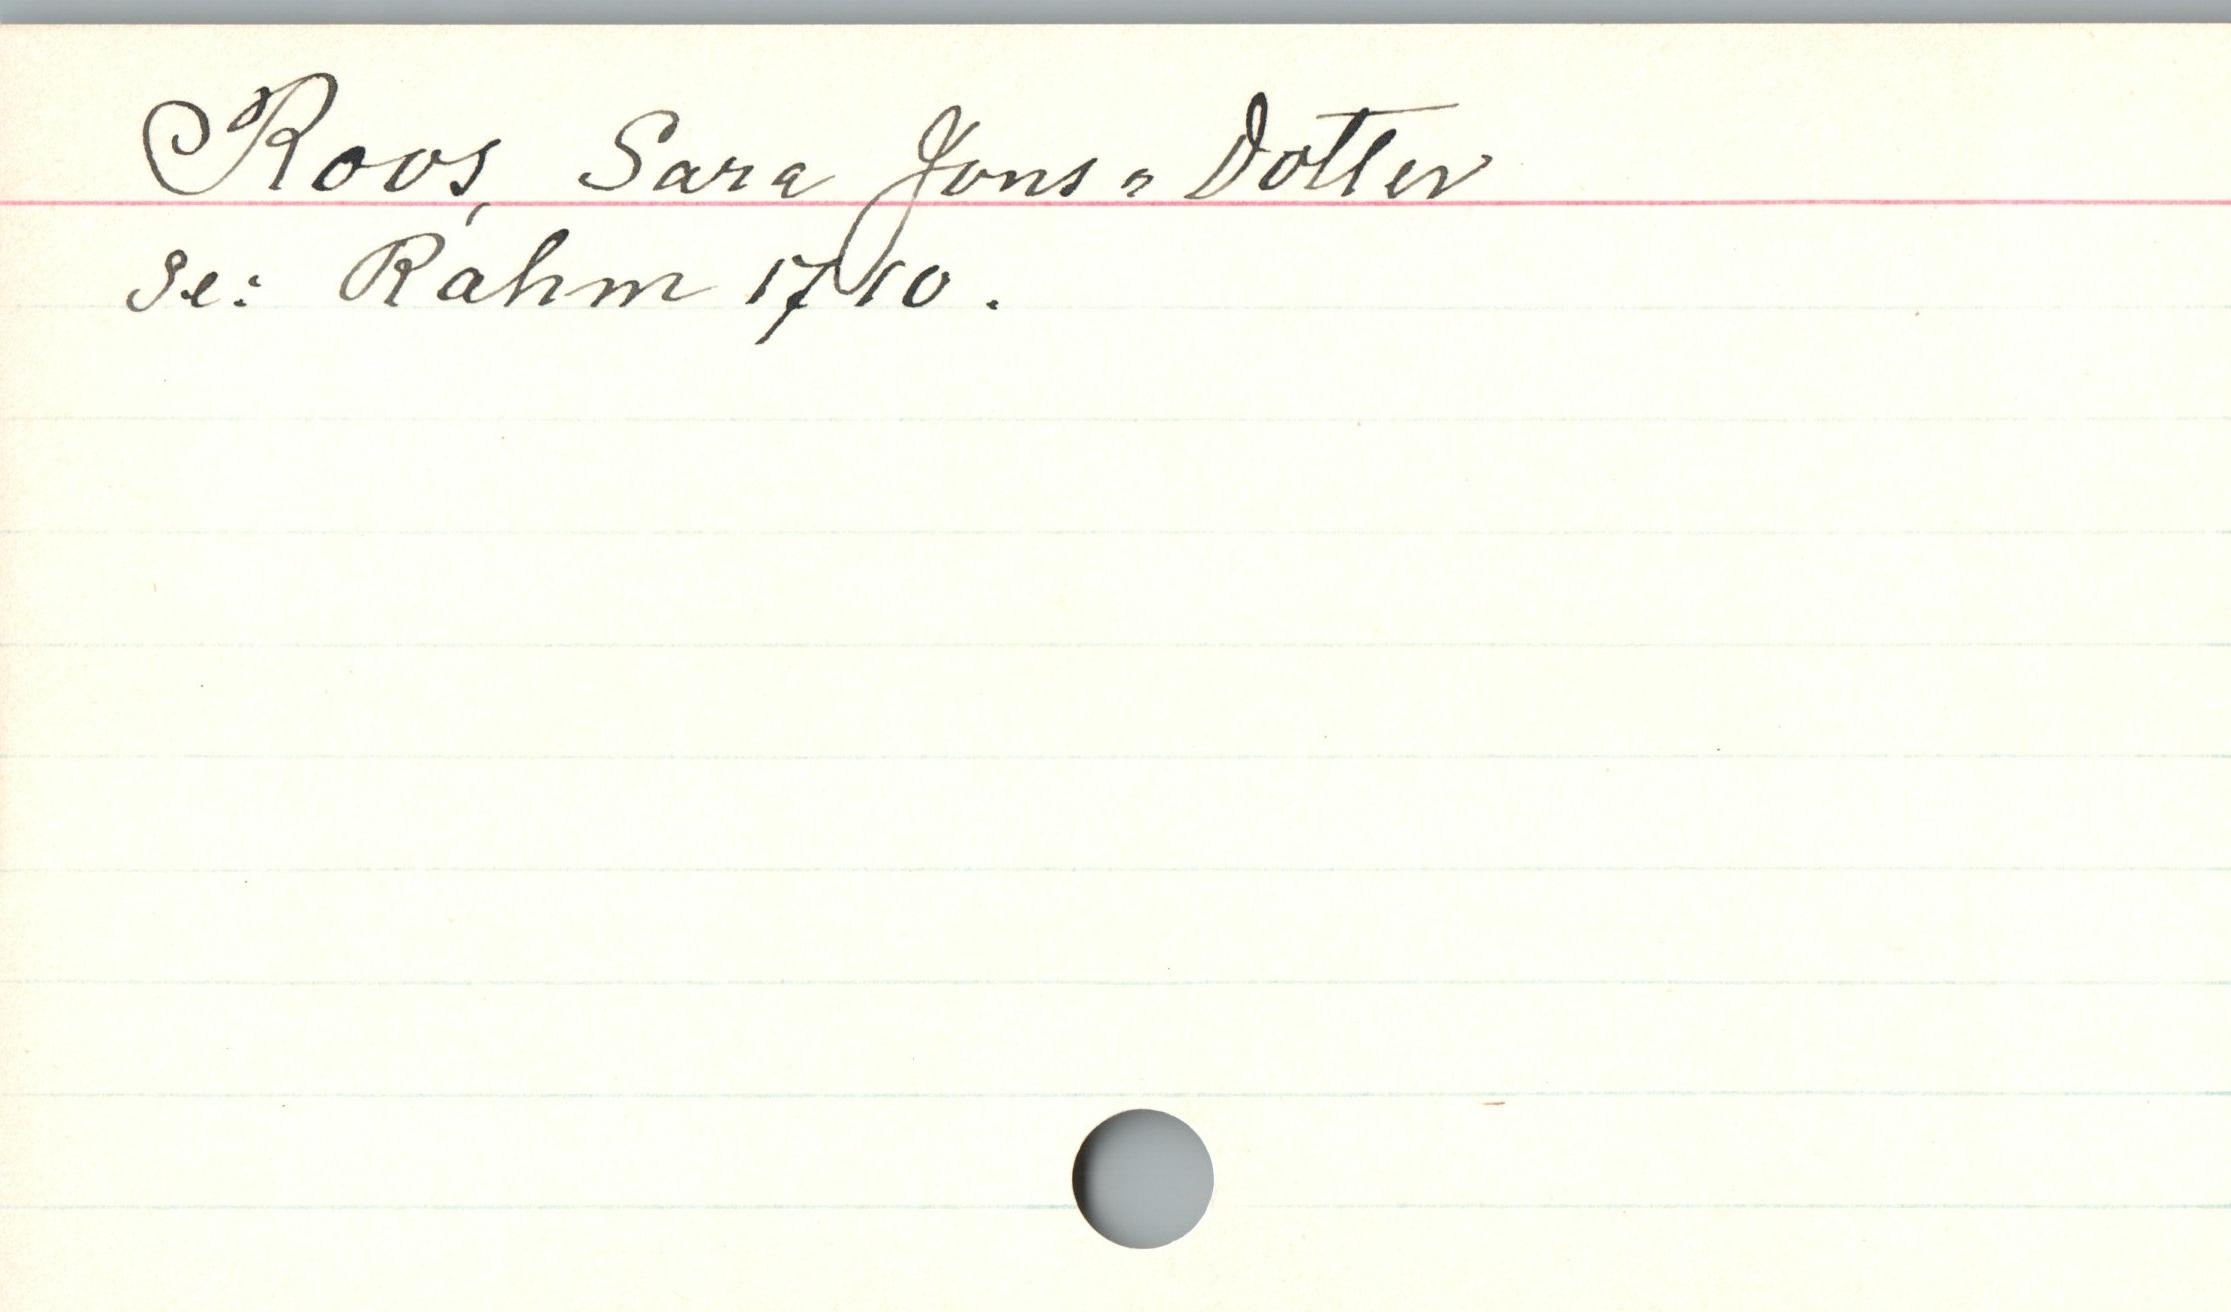 Roos, Sara Jons = Dotter
se: Rahm 1710.